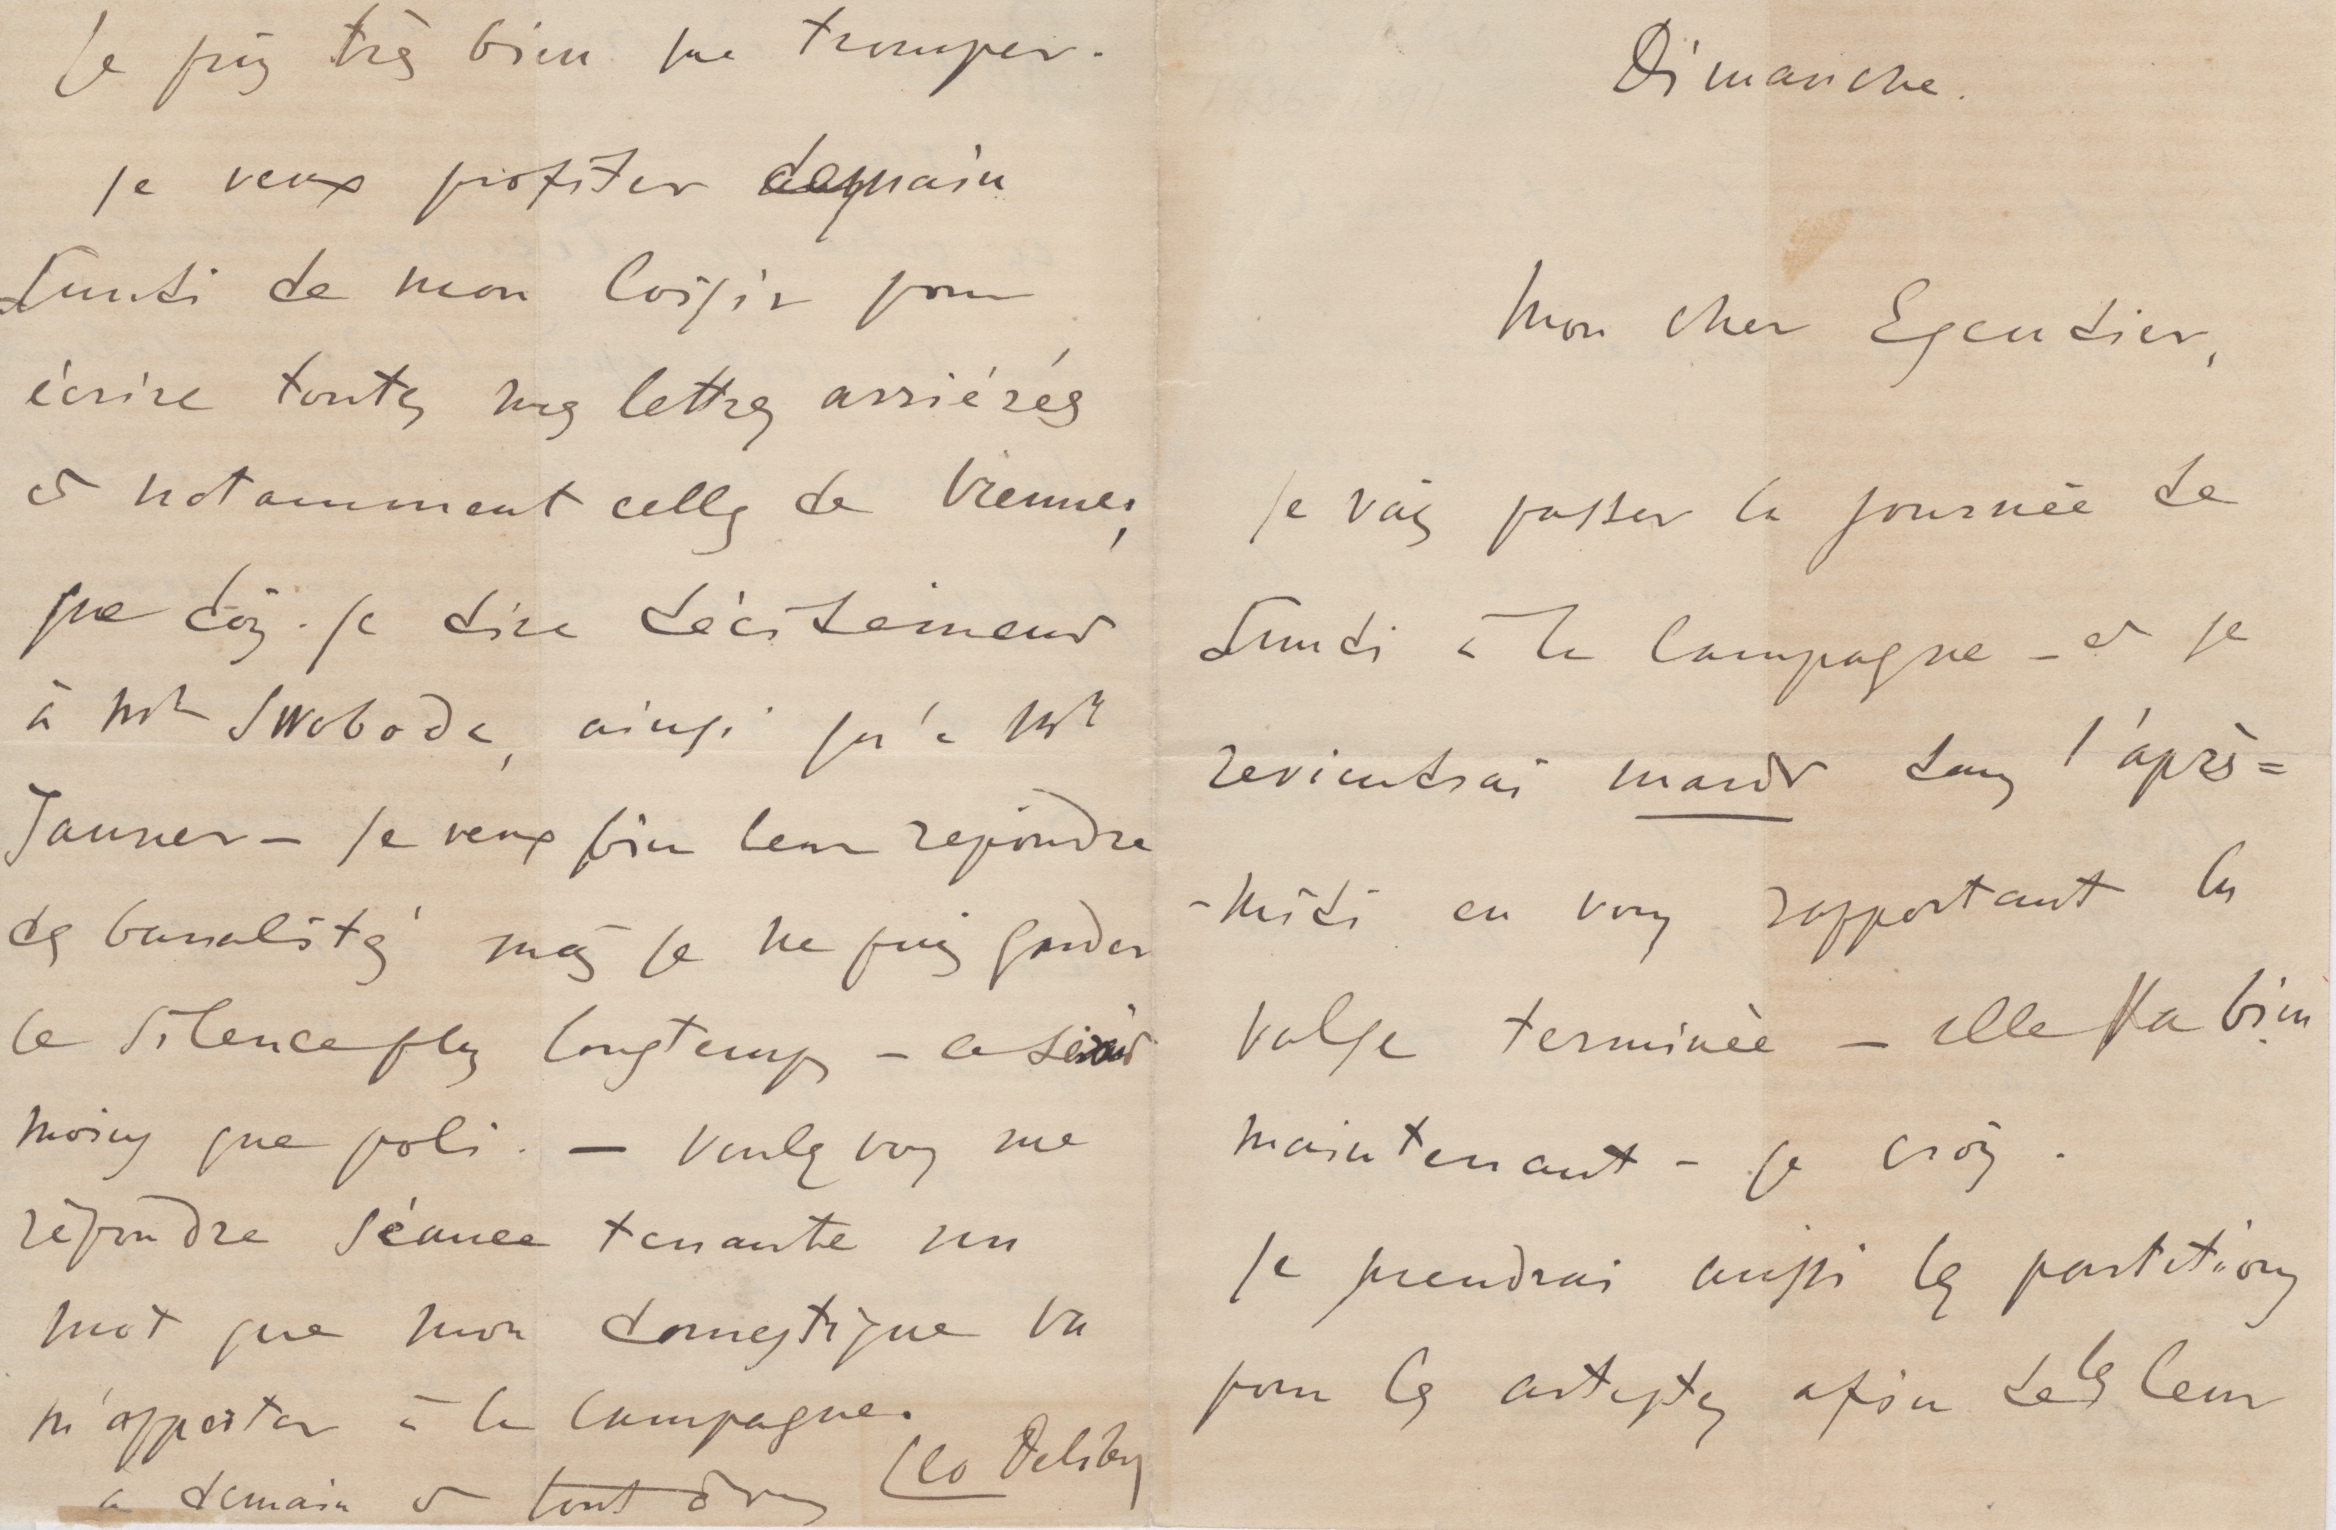 Dimanche.
Mon cher Escudier,
Je vais passer la journée de
Lundi à la Campagne – et je
reviendrai mardi dans l'après=
-midi en vous rapportant la
Valse terminée – elle va bien
maintenant – je crois.
Je prendrai aussi les partitions
pour les artistes afin de les leur
Je puis très bien me tromper.
Je veux profiter demain
Lundi de mon loisir pour
écrire toutes mes lettres arriérées
et notamment celles de Vienne;
que dois-je dire décidément
à Mr Swoboda, ainsi qu'à Mr
Jauner – Je veux bien leur répondre
des banalités mais je ne puis garder
le silence plus longtemps – ce serait
moins que poli. – Voulez vous me
répondre séance tenante un
mot que mon domestique va
m'apporter à la Campagne.
à demain et tout à vous Léo Delibes